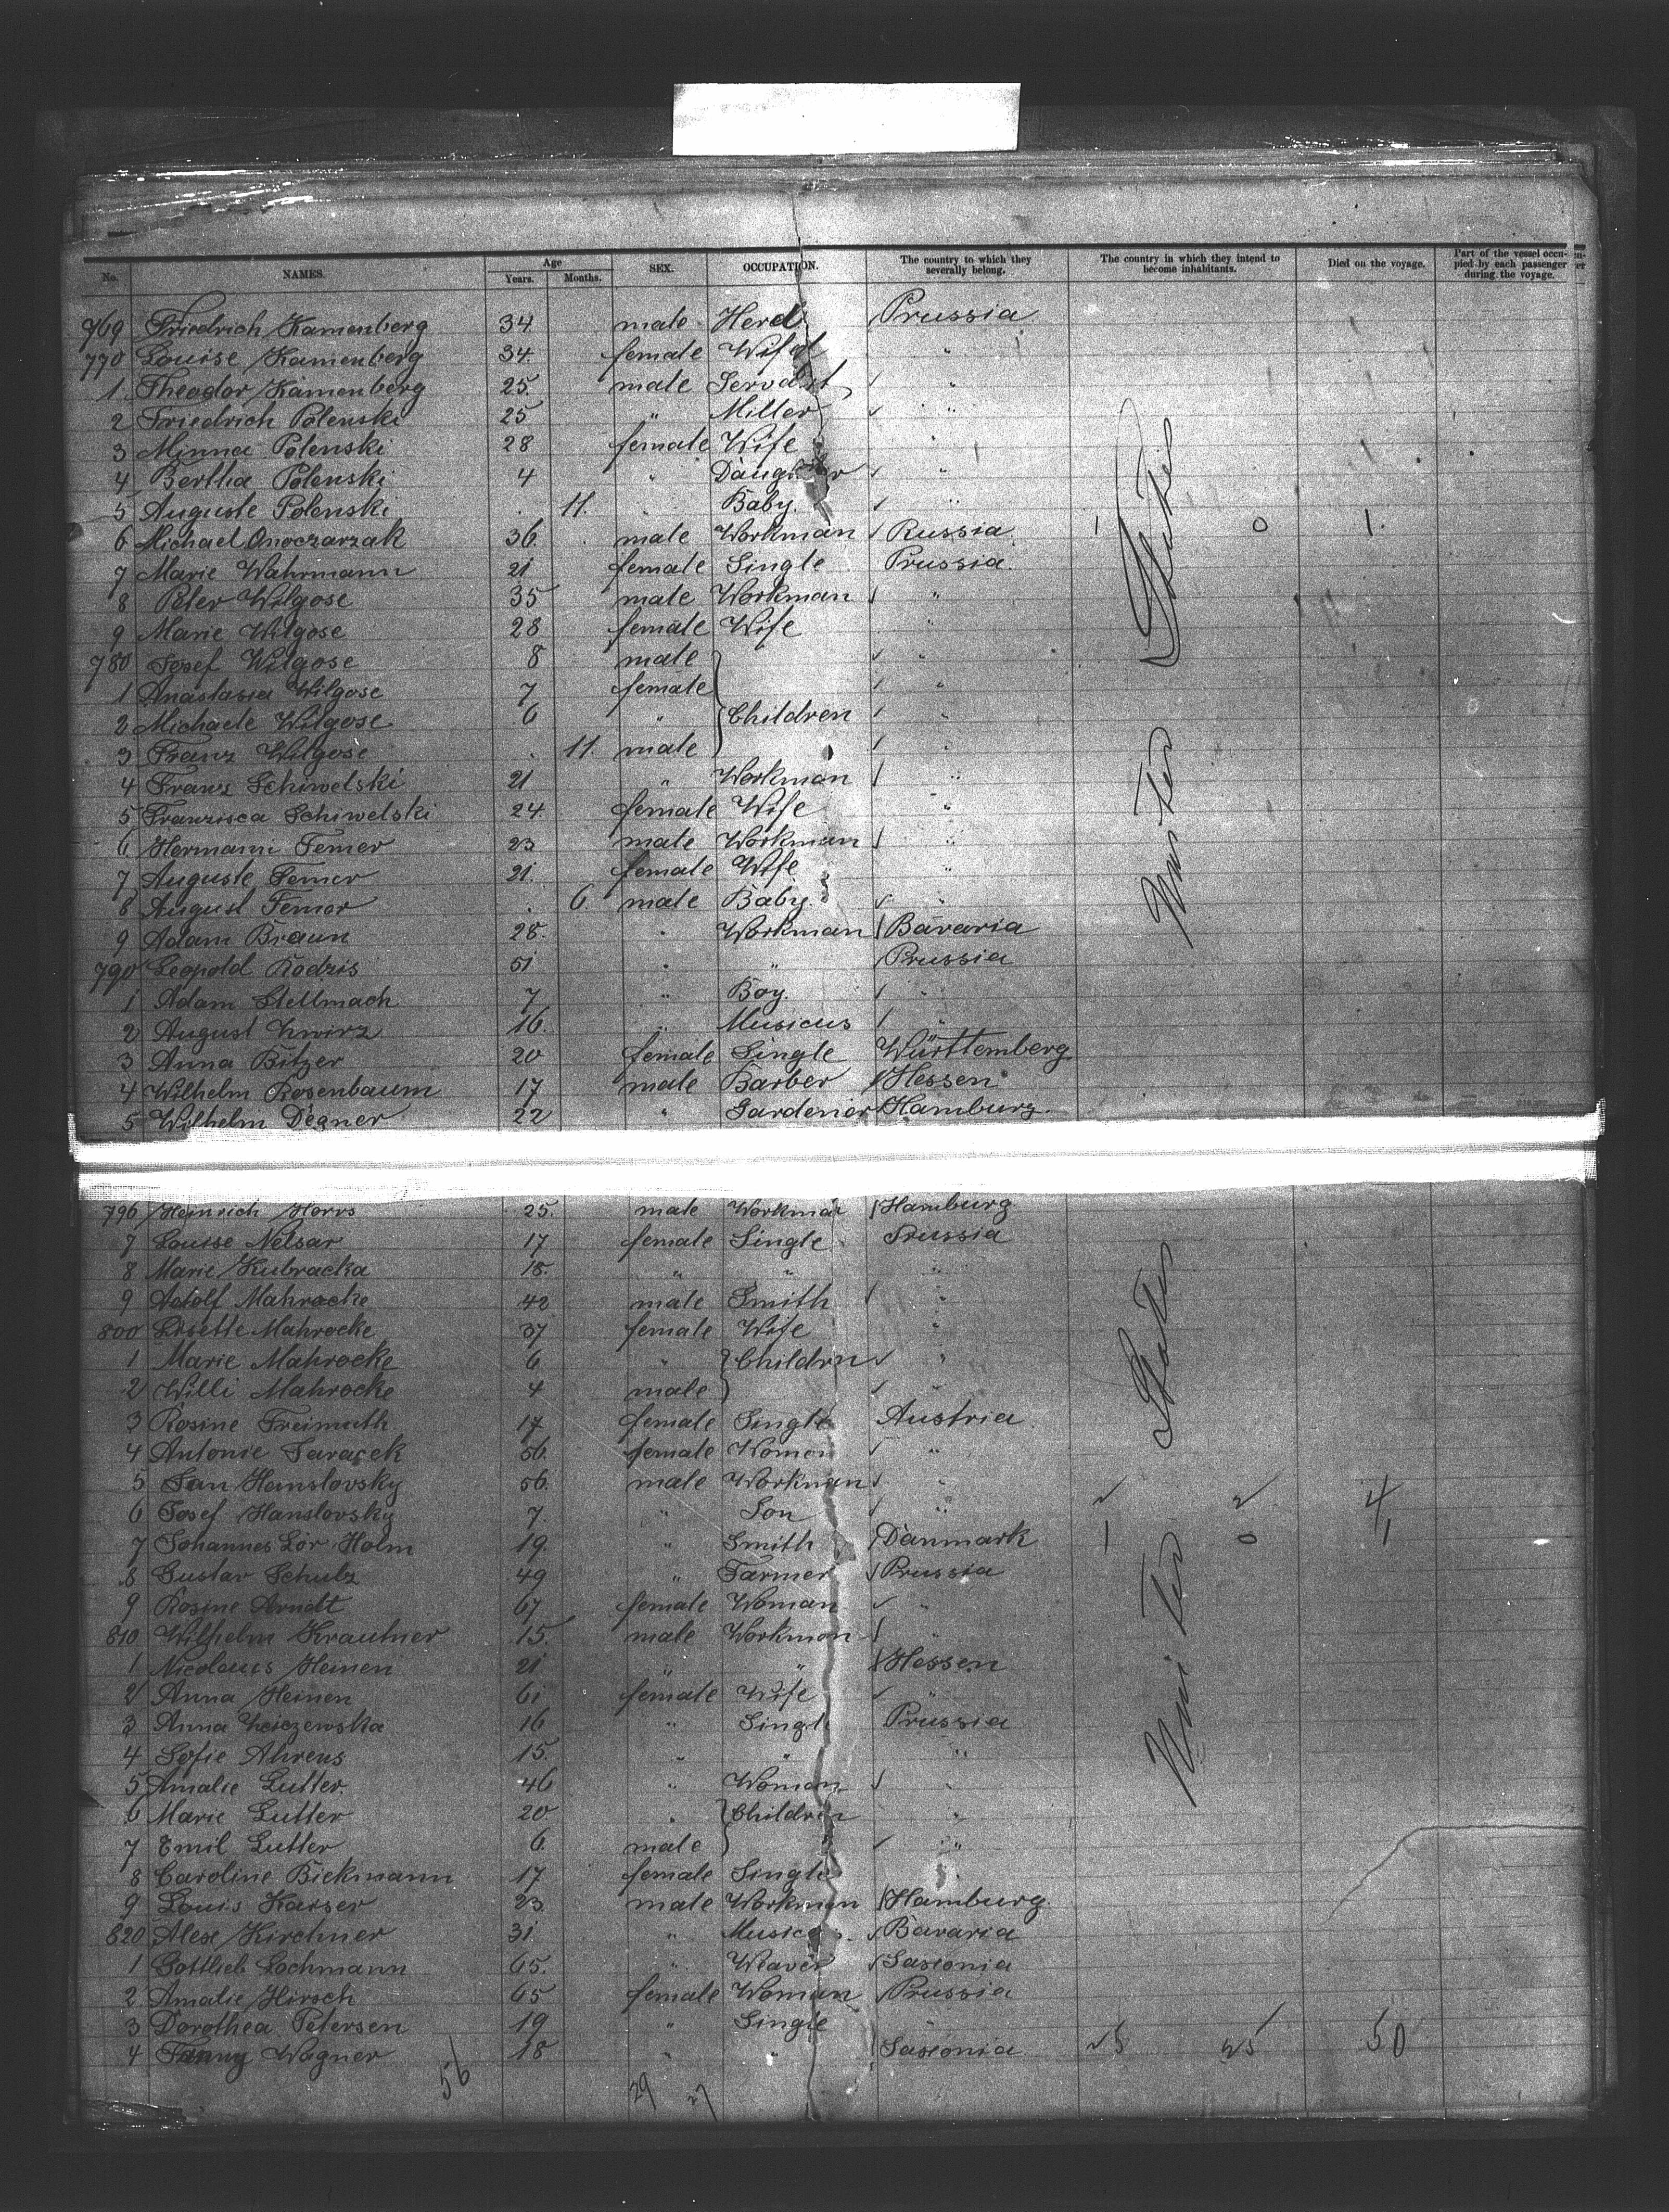 No. NAMES. Age Years. Months. SEX. OCCUPATION. The country to which they severally belong. The country in which they intend to become inhabitants. Died on the voyage. Part of the vessel occupied by each passenger during the voyage.
769 Friedrich Kamenberg 34 male Herd Prussia
770 Louise Kamenberg 34. female Wife "
1 Theodor Kamenberg 25. male Servant "
2 Friedrich Polenski 25 " Miller "
3 Minna Polenski 28 female Wife "
4 Bertha Polenski 4 " Daughter "
5 Auguste Polenski . 11. " Baby. "
6 Michael 36 male Workman Russia 1 0 1.
7 Marie Wahrmann 21 female Single Prussia.
8 Peter Wilgose 35 male Workman "
9 Marie Wilgose 28 female Wife "
780 Josef Wilgose 8 male "
1 Anastasia Wilgose 7 female "
2 Michaele Wilgose 6 " Children "
3 Franz Wilgose . 11. male "
4 Franz Schiwelski 21 " Workman "
5 Franzisca Schiwelski 24. female Wife "
6 Hermann Femer 23 male Workman "
7 Auguste Femer 21. female Wife "
8 August Femer . 6. male Baby. "
9 Adam Braun 28. " Workman Bavaria
790 Leopold Kodzis 51 " " Prussia
1 Adam Stellmach 7 " Boy. "
2 August 16. " Musicus "
3 Anna Bitzer 20 female Single Württemberg
4 Wilhelm Rosenbaum 17 male Barber Hessen
5 Wilhelm Degner 22 " Gardener Hamburg.
Uni ted States
796 Heinrich Horrs 25. male Workman Hamburg
7 Louise Nelsar 17 female Single Prussia
8 Marie Kubracka 18. " " "
9 Adolf Mahrocke 42 male Smith "
800 Lisette Mahrocke 37 female Wife "
1 Marie Mahrocke 6 " Childrn "
2 Willi Mahrocke 4 male "
3 Rosine Freimuth 17 female Single Austria
4 Antonie 56. female Women "
5 Jan Hanslovsky 56. male Workman " 2 2 4
6 Josef Hanslovsky 7. " Son "
7 Johannes Lor Holm 19. " Smith Danmark 1 0 1
8 Gustav Schulz 49 " Farmer Prussia
9 Rosine Arndt 67 female Woman "
810 Wilhelm Krautner 15. male Workman "
1 Nicolaus Heinen 21 " " Hessen
2 Anna Heinen 61 female Wife "
3 Anna 16 " Single Prussia
4 Sofie Ahrens 15. " " "
5 Amalie Lutter. 46 " Woman "
6 Marie Lutter 20 " Children "
7 Emil Lutter 6. male "
8 Caroline Bickmann 17 female Single
9 Louis Kaiser 23. male Workman Hamburg.
820 Alex Kirchner 31 " Bavaria
1 Gottlieb Lochmann 65. " Weaver Saxonia
2 Amalie Hirsch 65 female Woman Prussia
3 Dorothea Petersen 19 " Single
4 Fanny Wagner 18 " " Saxonia 25 25 50
Uni ted States
56 29 27